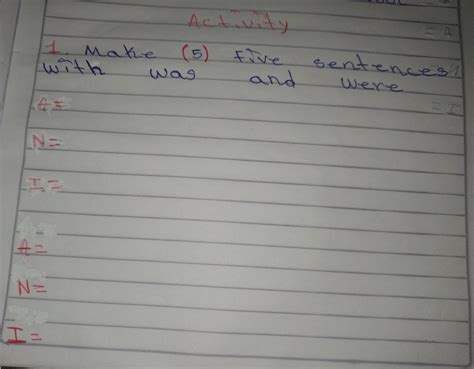 Activity
1. Make (5) five sentences
with was and were
A =
N =
I =
A =
N =
I =